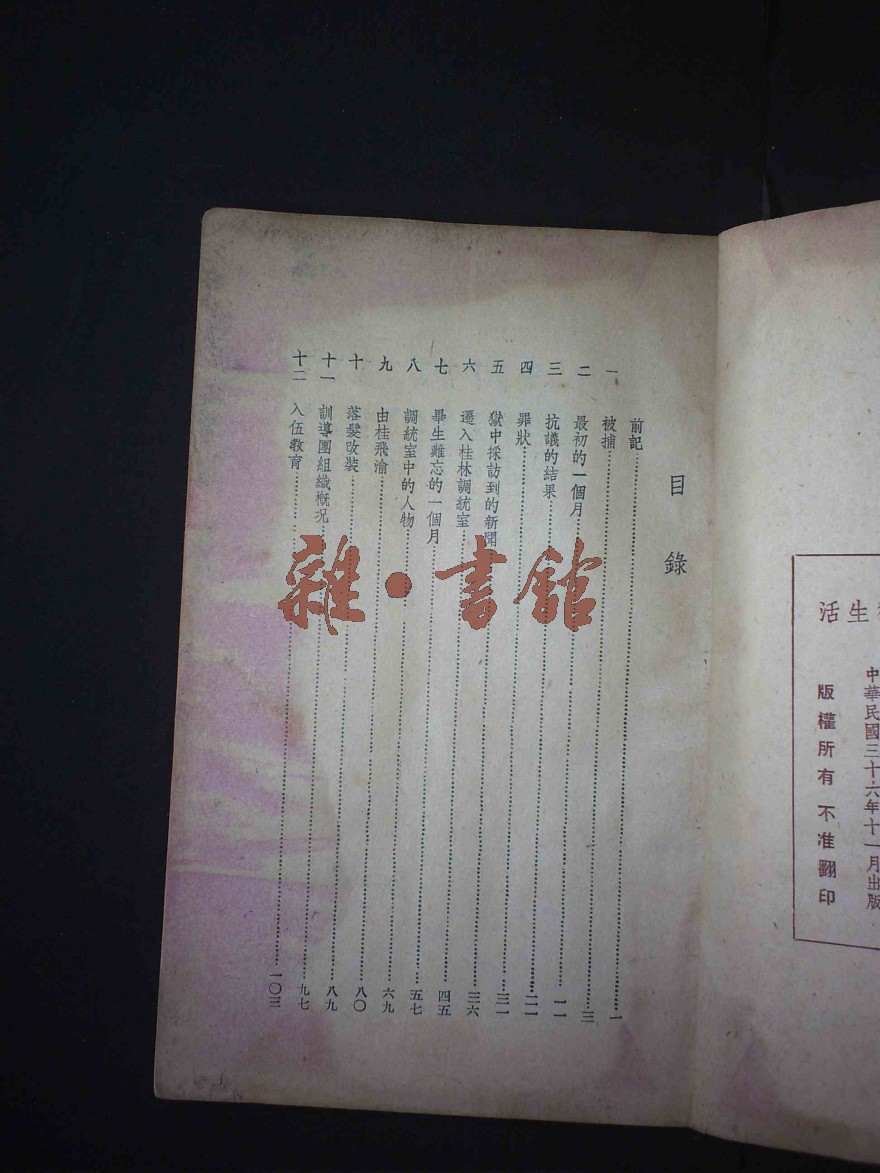 生活
中華民國三十六年十一月出版
版權所有 不准翻印
目錄
前記……一
一 被捕……三
二 最初的一個月……一一
三 抗議的結果……二一
四 罪狀……三一
五 獄中採訪到的新聞……三六
六 遷入桂林調統室……四五
七 畢生難忘的一個月……五七
八 調統室中的人物……六九
九 由桂飛渝……八〇
十 落髮改裝……八九
十一 訓導團組織概况……九七
十二 入伍教育……一〇三
雜·書館